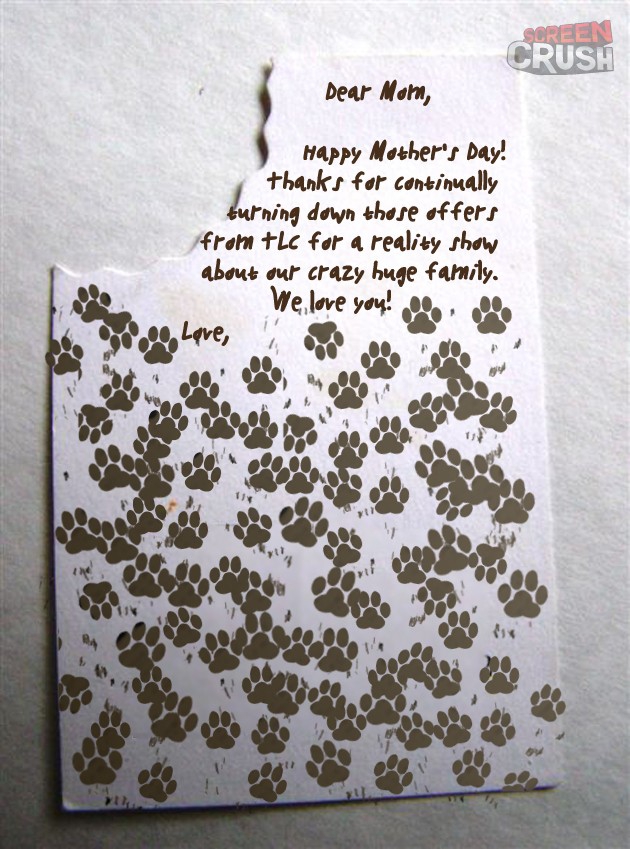 SCREEN
CRUSH
Dear Mom,
Happy Mother's Day!
Thanks for continually
turning down those offers
from TLC for a reality show
about our crazy huge family.
We love you!
Love,